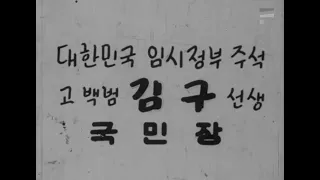 대한민국 임시정부 주석
고 백범 김구 선생
국민장